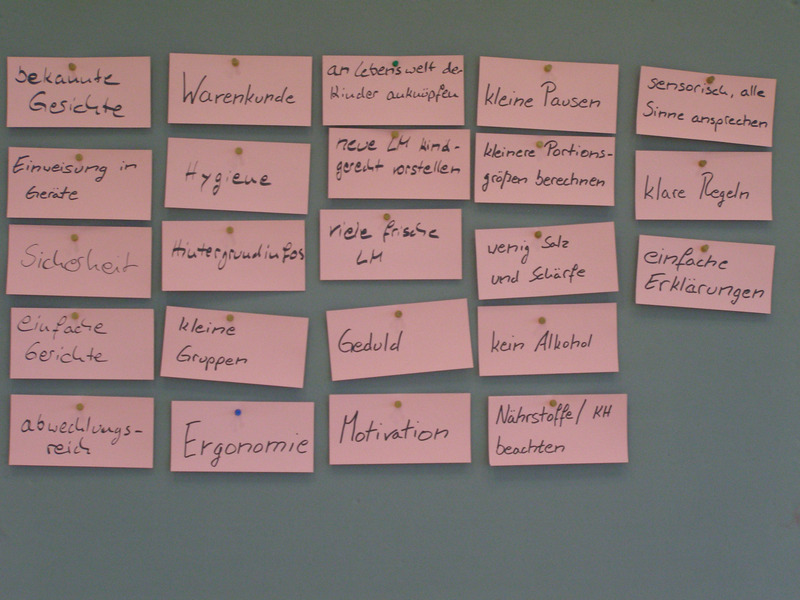 bekannte
Gerichte
Einweisung in
Geräte
Sicherheit
einfache
Gerichte
abwechlungs-
reich
Warenkunde
Hygiene
Hintergrundinfos
kleine
Gruppen
Ergonomie
an Lebenswelt der
Kinder anknüpfen
neue LM kind-
gerecht vorstellen
viele frische
LM
Geduld
Motivation
kleine Pausen
kleinere Portions-
größen berechnen
wenig Salz
und Schärfe
kein Alkohol
Nährstoffe/ KH
beachten
sensorisch, alle
Sinne ansprechen
klare Regeln
einfache
Erklärungen